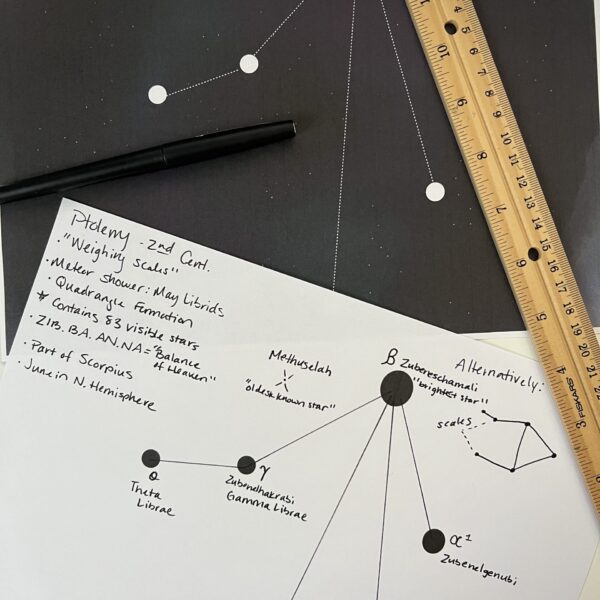 Ptolemy - 2nd Cent.
• "Weighing Scales"
• Meteor Shower: May Librids
• Quadrangle Formation
* Contains 83 visible stars
• ZIB. BA. AN. NA = "Balance
of Heaven"
• Part of Scorpius
• June in N. Hemisphere
Methuselah
"oldest known star"
β Zubereschamali
"brightest star"
Alternatively:
scales
θ
Theta
Librae
γ
Zubenelhakrabi
Gamma Librae
α¹
Zubenelgenubi
10 9 8 7 6 5 4 3
4 5 6 7 8 9 10 11 12 13 14 15 16 17 18 19 20 21 22
FISKARS